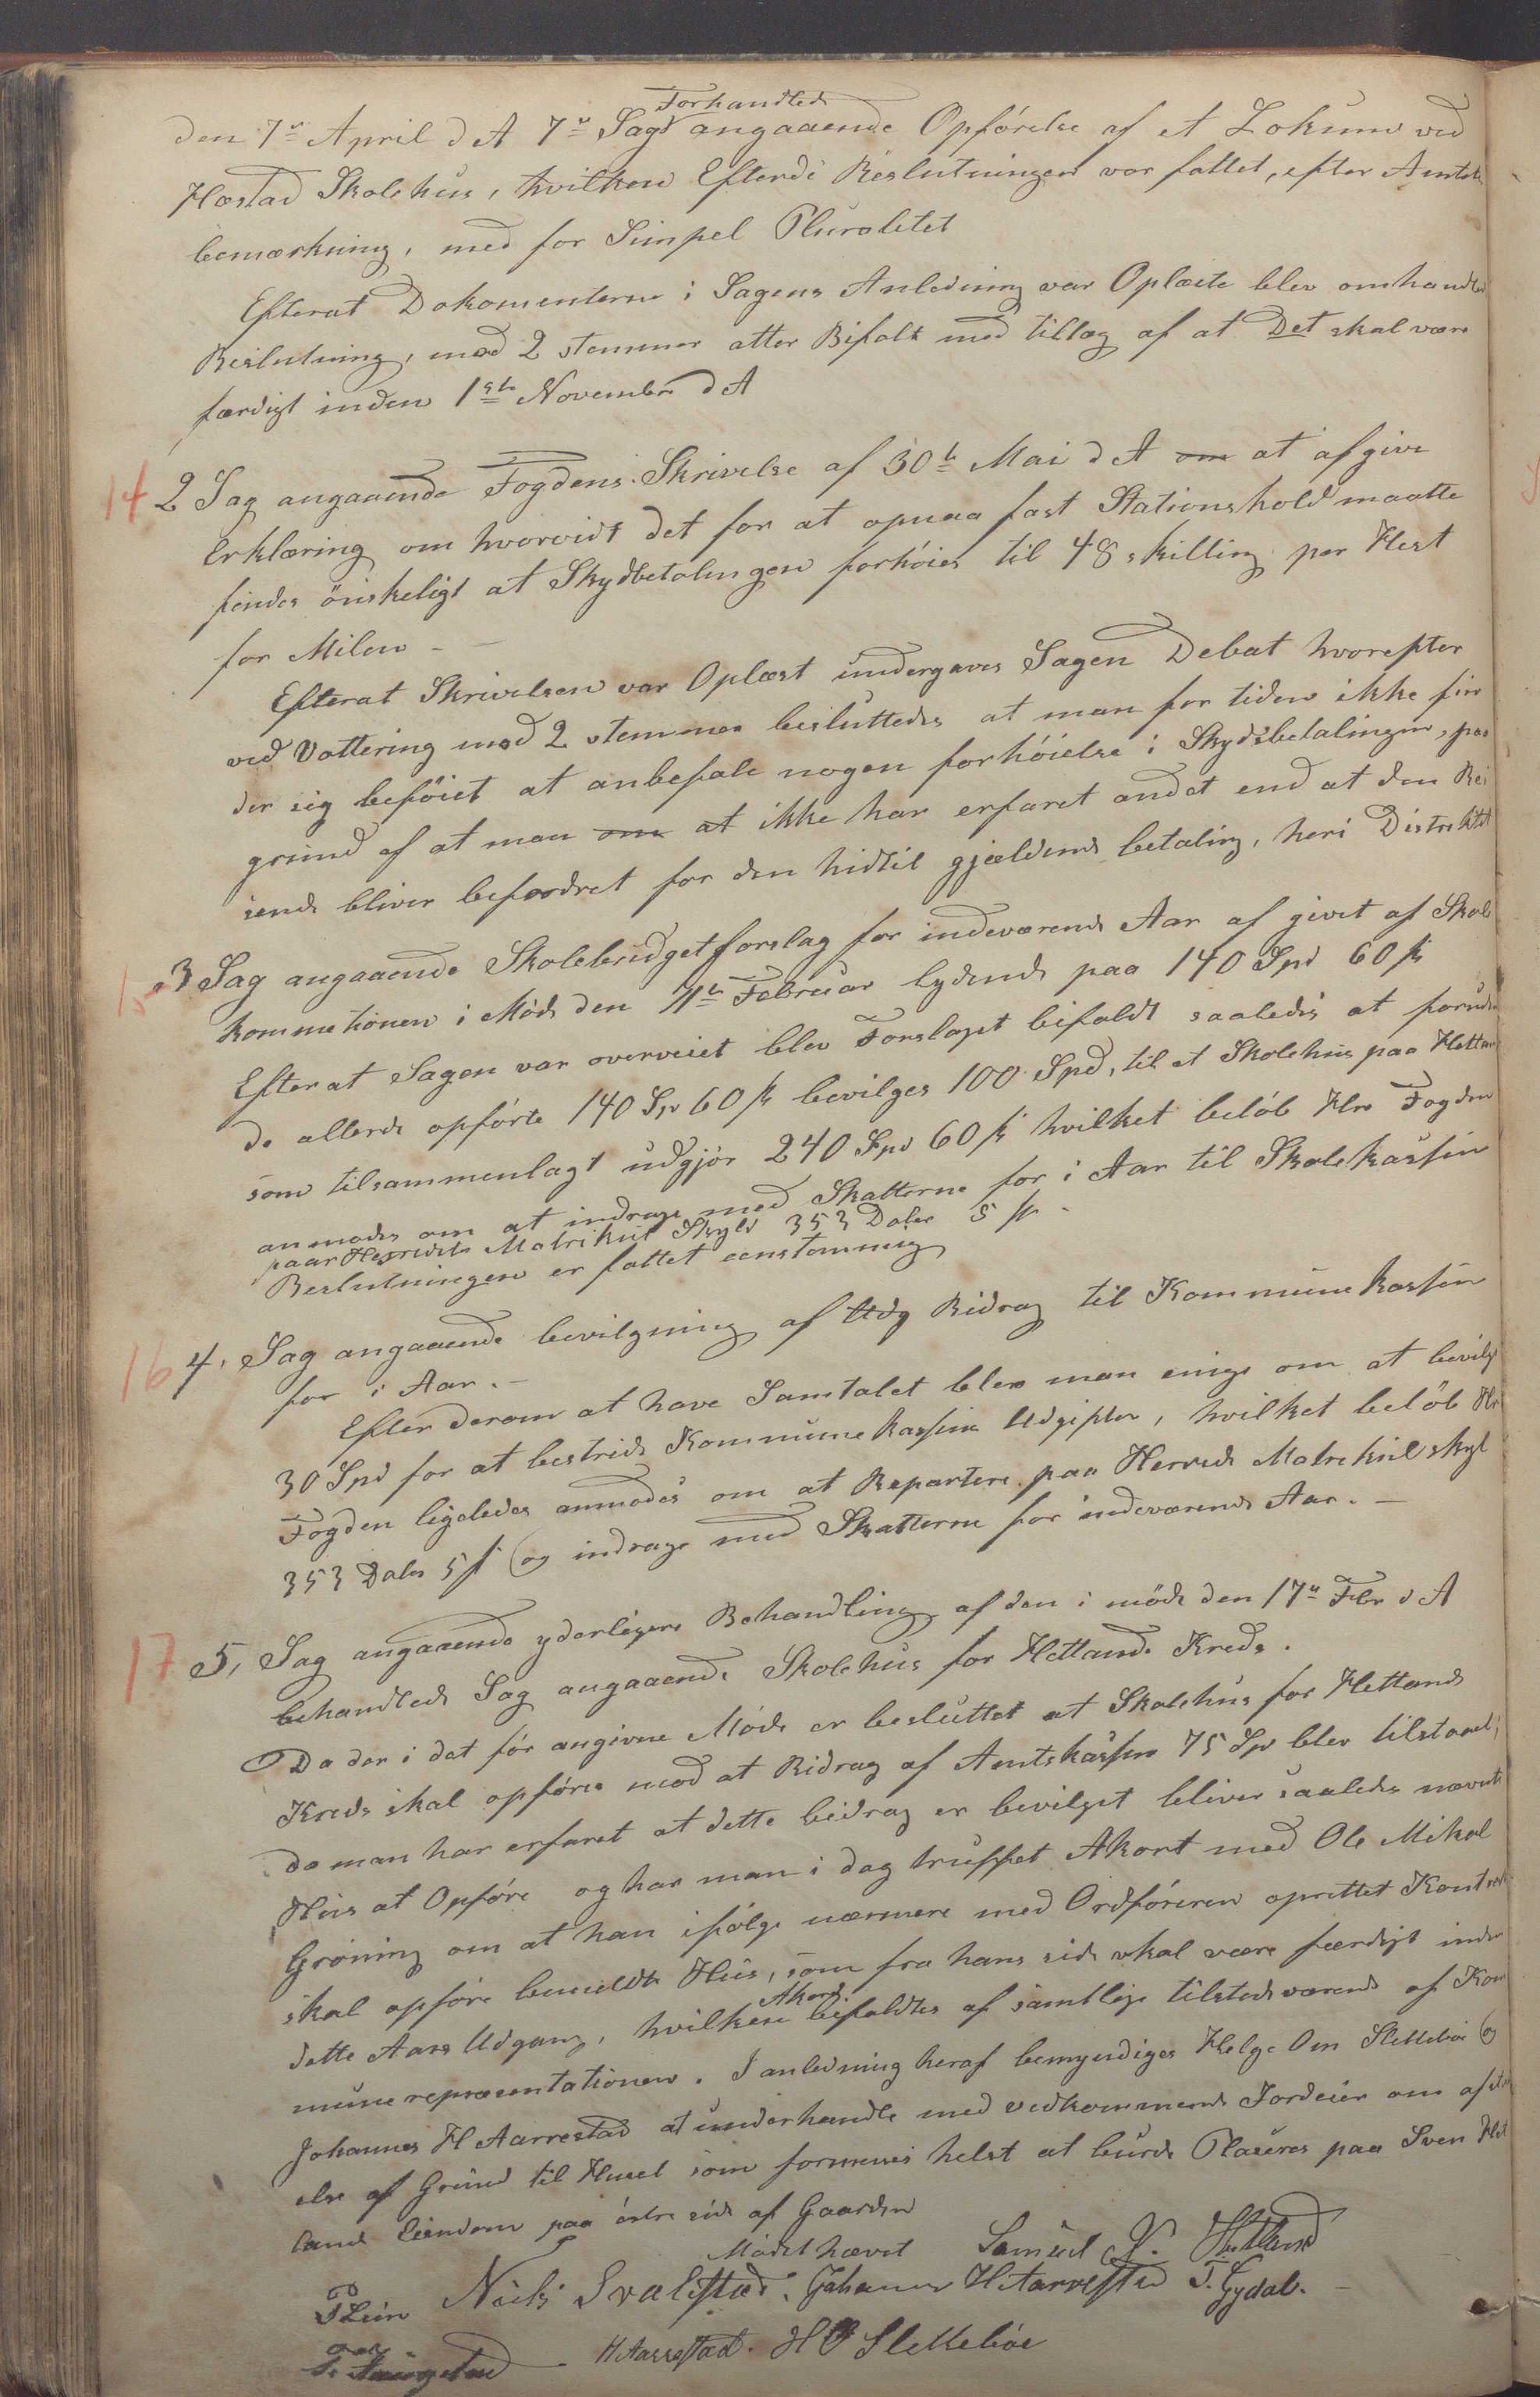 Forhandlede
den 7de April d A 7de Sag angaaende Opförelse af et Lokum ved
Hæstad Skolehus, hvilken Efterdi Beslutningen var fattet, efter Amtets
bemærkning, med for Simpel Pluralitet
Efterat Dokomenterne i Sagens Anledning var Oplæste blev omhandled
Beslutning, med 2 stemmer atter Bifalt med tillæg af at Det skal være
færdigt inden 1ste November d A
14 2 Sag angaaende Fogdens Skrivelse af 30te Mai d A om at afgive
Erklæring om hvorvidt det for at opnaa fast Stationshold maatte
findes önskeligt at Skydbetalingen forhöies til 48 skilling per Hest
for Milen -
Efterat Skrivelsen var Oplæst undergaves Sagen Debat hvorefter
ved Vottering med 2 stemmer besluttedes at man for tiden ikke fin
der sig beföiet at anbefale nogen forhöielse i Skydsbetalingen, paa
grund af at man om at ikke har erfaret andet end at den Rei
sende bliver befordret for den hidtil gjældende betaling, heri Distriktet
15 3 Sag angaaende Skolebudgetforslag for indeværende Aar af givet af Skole
kommetionen i Möde den Februar lydende paa 140 Spd 60 s
Efter at Sagen var overveiet blev Forslaget bifaldt saaledes at foruden
de allerede opförte 140 Sp 60 s bevilges 100 Spd, til et Skolehus paa Hetland
som tilsammenlagt udgjör 240 Spd 60 s hvilket belöb Hr Fogden
anmodes om at inddrage med Skatterne for i Aar til Skolekassen
paa Herredets Matrikul Skyld 353 Daler 5 s -
Beslutningen er fattet eenstemmig
16 4, Sag angaaende bevilgning af Udg Bidrag til Kommunekassen
for i Aar. -
Efter derom at have Samtalet blev man enige om at bevilge
30 Spd for at bestride Kommunekassens Udgifter, hvilket belöb Hr
Fogden ligeledes anmodes om at Repartere paa Herreds Matrekulskyl
353 Daler 5 s og indrage med Skatterne for indeværende Aar. -
17 5, Sag angaaende yderligere Behandling af den i möde den 17de Fbr d A
behandlede Sag angaaende Skolehus for Hetlands Kreds.
Da der i det för angivne Möde er besluttet at Skolehus for Hetlands
Kreds skal opföres mod at Bidrag af Amtskassen 75 Sp blev tilstaaet,
da man har erfaret at dette bidrag er bevilget bliver saaledes nævnte
Hus at Opföre og har man i dag truffet Akort med Ole Mikal
Gröning om at han ifölge nærmere med Ordföreren oprettet Kontrakt
skal opföre bemeldte Hus, som fra hans side skal være færdigt inden
Akord
dette Aars Udgang, hvilken bifaldtes af samtlige tilstedeværende af Kom
munerepræsentationen. I anledning heraf bemyndiges Helge Osn Slettebö og
Johannes H Aarrestad at underhandle med vedkommende Jordeier om afstaa
else af Grund til Huset som formenes helst at burde Plaseres paa Sven Het
lands Eiendom paa östre side af Gaarden
Mödet hævet Samuel Hetland
Niels Svalestad. Johannes H Aarrestad T. Gydal. -
H Aarrestad. H O Sletteböe